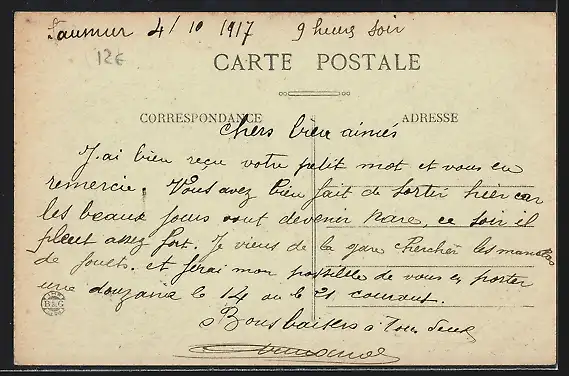 Saumur 4/10 1917 9 heures soir
12€
CARTE POSTALE
CORRESPONDANCE ADRESSE
chers bien aimés
J'ai bien reçu votre petit mot et vous en
remercie. Vous avez bien fait de sortir hier car
les beaux jours vont devenir rare, ce soir il
pleut assez fort. Je viens de la gare chercher les
de fouets. et ferai mon possible de vous en porter
une douzaine le 14 ou le 21 courant.
Bons baisers à tous deux
B&G